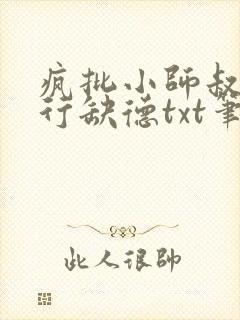 疯批小师叔
行缺德txt笔
此人很帥